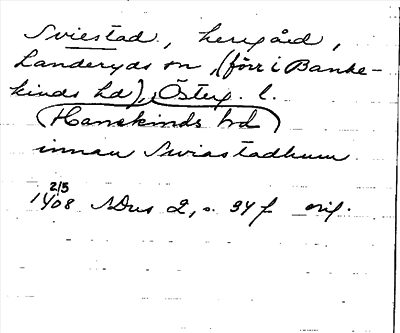 Sviestad, herrgård,
Landeryds sn, (förr i Banke-
kinds hd), Österg. l.
(Hanekinds hd)
innan Swiastadhum
2/5
1408 SDns 2, s. 34 f orig.